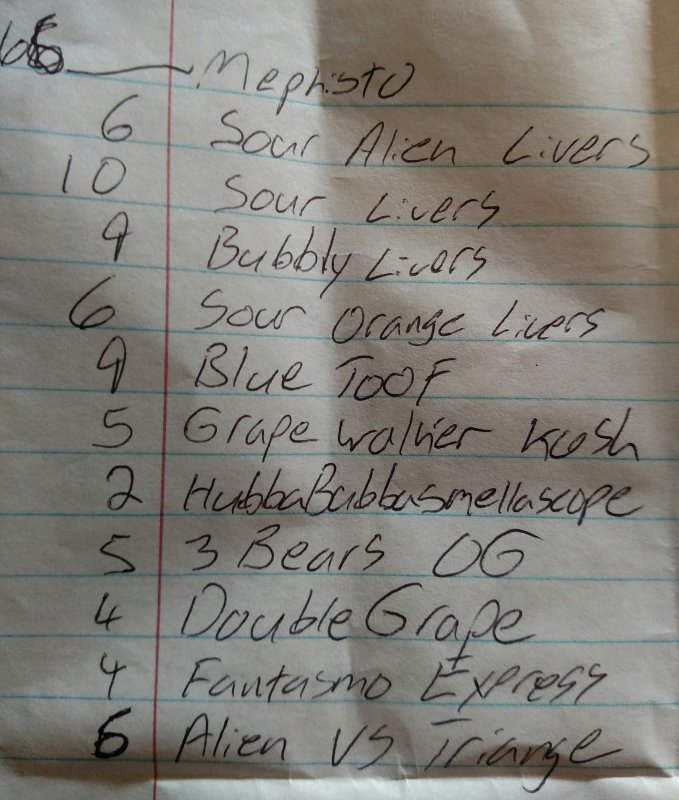 Mephisto
6 Sour Alien Livers
10 Sour Livers
9 Bubbly Livers
6 Sour Orange Livers
9 Blue Toof
5 Grape Walker Kush
2 HubbaBubbasmellascope
5 3 Bears OG
4 Double Grape
4 Fantasmo Express
6 Alien vs Triange